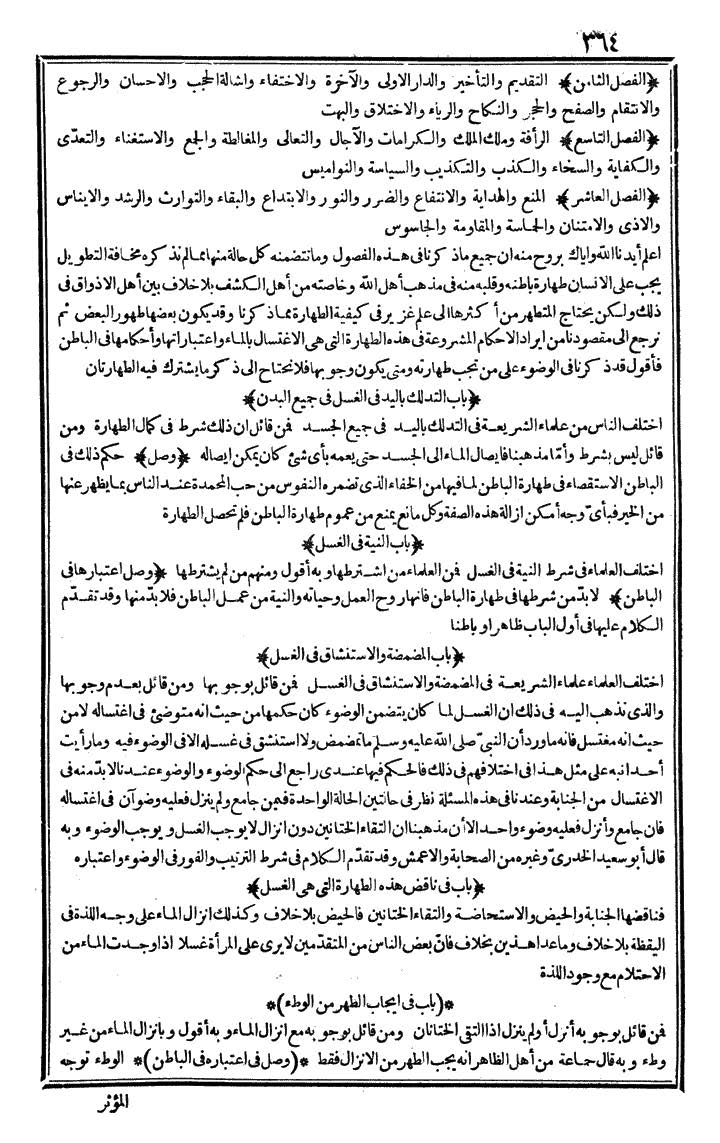 ٣٦٤
﴿الفصل الثامن﴾ التقديم والتأخير والدار الاولى والآخرة والاختفاء واشالة الحجب والاحسان والرجوع
والانتقام والصفح والحجر والنكاح والرياء والاختلاق والبهت
﴿الفصل التاسع﴾ الرأفة وملك الملك والكرامات والآجال والتعالى والمغالطة والجمع والاستغناء والتعدّى
والكفاية والسخاء والكذب والتكذيب والسياسة والنواميس
﴿الفصل العاشر﴾ المنع والهداية والانتفاع والضرر والنور والابتداع والبقاء والتوارث والرشد والايناس
والاذى والامتنان والحاسة والمقاومة والجاسوس
اعلم أيدنا الله واياك بروح منه ان جميع ماذكرنا فى هذه الفصول وما تتضمنه كل حالة منها مما لم نذكره مخافة التطويل
يجب على الانسان طهارة باطنه وقلبه منه فى مذهب أهل الله وخاصته من أهل الكشف بلا خلاف بين أهل الاذواق فى
ذلك ولكن يحتاج المتطهر من أكثرها الى علم غزير فى كيفية الطهارة مما ذكرنا وقد يكون بعضها طهور البعض ثم
نرجع الى مقصودنا من ايراد الاحكام المشروعة فى هذه الطهارة التى هى الاغتسال بالماء واعتباراتها وأحكامها فى الباطن
فأقول قد ذكرنا فى الوضوء على من تجب طهارته ومتى يكون وجوبها فلا نحتاج الى ذكر ما يشترك فيه الطهارتان
﴿باب التدلك باليد فى الغسل فى جميع البدن﴾
اختلف الناس من علماء الشريعة فى التدلك باليد فى جميع الجسد فمن قائل ان ذلك شرط فى كمال الطهارة ومن
قائل ليس بشرط وأما مذهبنا فايصال الماء الى الجسد حتى يعمه بأى شئ كان يمكن ايصاله ﴿وصل﴾ حكم ذلك فى
الباطن الاستقصاء فى طهارة الباطن لما فيها من الخفاء الذى تضمره النفوس من حب المحمدة عند الناس بما يظهر عنها
من الخير فبأىّ وجه أمكن ازالة هذه الصفة وكل مانع يمنع من عموم طهارة الباطن فلم تحصل الطهارة
﴿باب النية فى الغسل﴾
اختلف العلماء فى شرط النية فى الغسل فمن العلماء من اشترطها وبه أقول ومنهم من لم يشترطها ﴿وصل اعتبارها فى
الباطن﴾ لابدّ من شرطها فى طهارة الباطن فانها روح العمل وحياته والنية من عمل الباطن فلا بدّ منها وقد تقدّم
الكلام عليها فى أول الباب ظاهرا وباطنا
﴿باب المضمضة والاستنشاق فى الغسل﴾
اختلف العلماء علماء الشريعة فى المضمضة والاستنشاق فى الغسل فمن قائل بوجوبها ومن قائل بعدم وجوبها
والذى نذهب اليه فى ذلك ان الغسل لما كان يتضمن الوضوء كان حكمها من حيث انه متوضئ فى اغتساله لا من
حيث انه مغتسل فانه ما ورد أن النبىّ صلى الله عليه وسلم ما تمضمض ولا استنشق فى غسله الا فى الوضوء فيه وما رأيت
أحدا نبه على مثل هذا فى اختلافهم فى ذلك فالحكم فيها عندى راجع الى حكم الوضوء والوضوء عندنا لابدّ منه فى
الاغتسال من الجنابة وعندنا فى هذه المسئلة نظر فى حالتين الحالة الواحدة فيمن جامع ولم ينزل فعليه وضوآن فى اغتساله
فان جامع وأنزل فعليه وضوء واحد الا أن مذهبنا ان التقاء الختانين دون انزال لا يوجب الغسل ويوجب الوضوء وبه
قال أبو سعيد الخدرىّ وغيره من الصحابة والاعمش وقد تقدّم الكلام فى شرط الترتيب والفور فى الوضوء واعتباره
﴿باب فى ناقض هذه الطهارة التى هى الغسل﴾
فناقضها الجنابة والحيض والاستحاضة والتقاء الختانين فالحيض بلا خلاف وكذلك انزال الماء على وجه اللذة فى
اليقظة بلا خلاف وما عدا هذين بخلاف فانّ بعض الناس من المتقدّمين لا يرى على المرأة غسلا اذا وجدت الماء من
الاحتلام مع وجود اللذة
*(باب فى ايجاب الطهر من الوطء)*
فمن قائل بوجوبه أنزل أو لم ينزل اذا التقى الختانان ومن قائل بوجوبه مع انزال الماء وبه أقول وبانزال الماء من غير
وطء وبه قال جماعة من أهل الظاهر انه يجب الطهر من الانزال فقط *(وصل فى اعتباره فى الباطن)* الوطء توجه
المؤثر